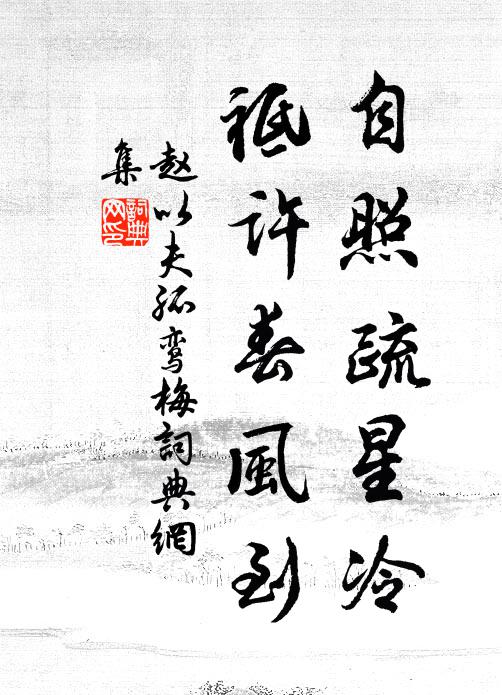 自照疏星冷
祗许春風到
赵以夫孤鸾梅詞典網
集
詞典
网印